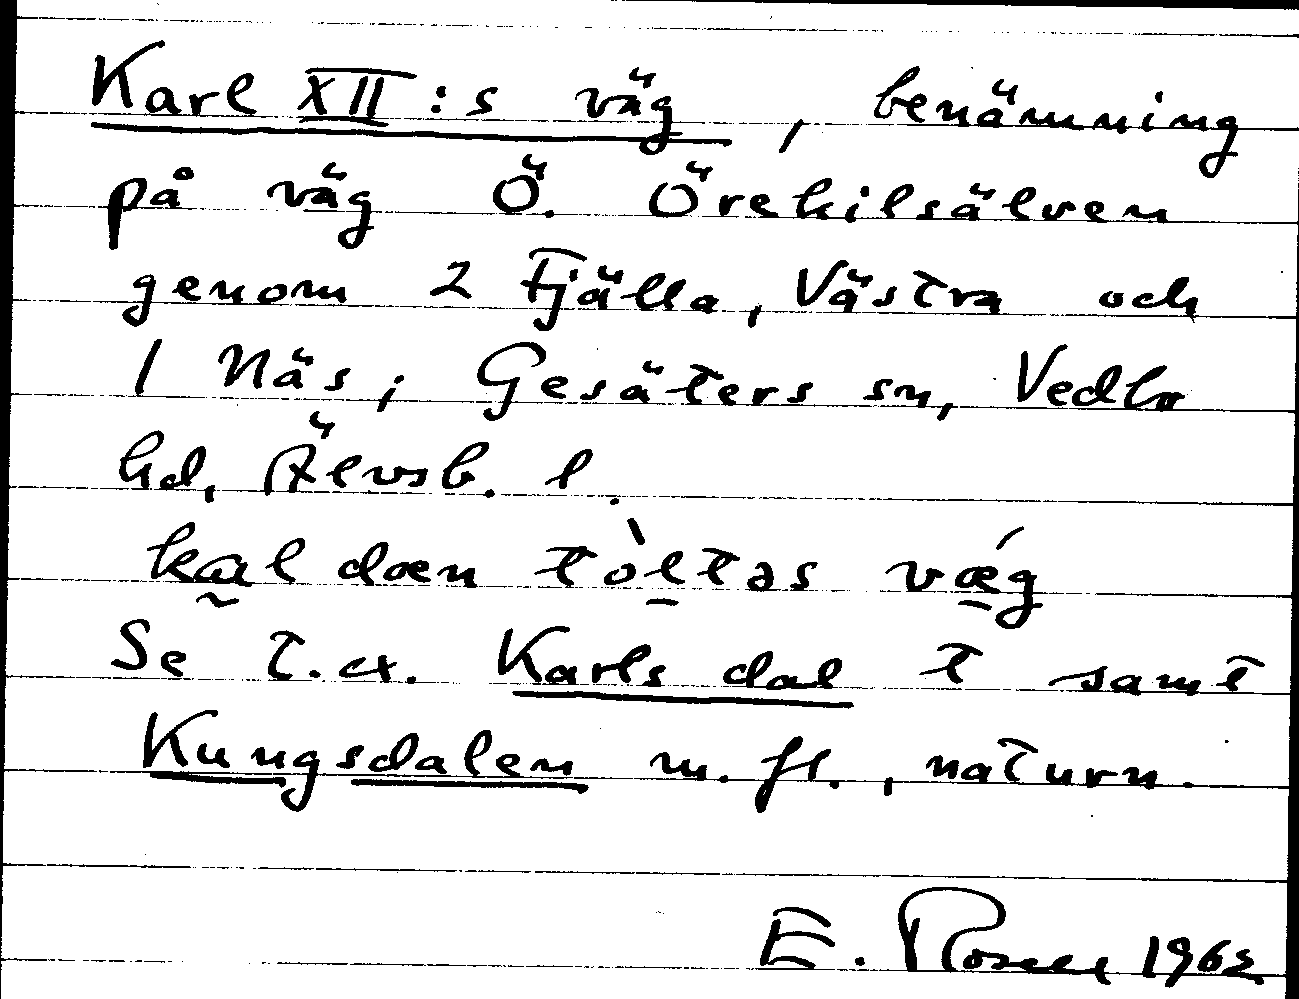 Karl XII:s väg, benämning
på väg Ö. Örekilsälven
genom 2 Fjälla, Västra och
1 Näs; Gesäters sn, Vedbo
hd, Älvsb. l.
ka̰l dæn tòl̲təs vǽ̲g
Se t.ex. Karls dal t samt
Kungsdalen m. fl., naturn.
E. 1962